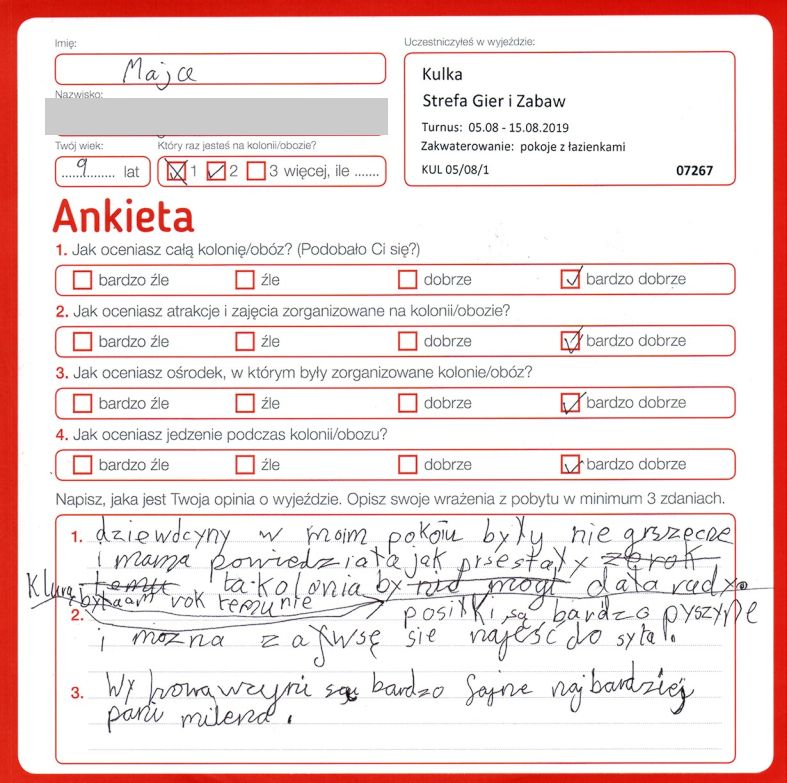 Imię:
Majce
Nazwisko:
Twój wiek:
9 lat
Który raz jesteś na kolonii/obozie?
1 2 3 więcej, ile .......
Uczestniczyłeś w wyjeździe:
Kulka
Strefa Gier i Zabaw
Turnus: 05.08 - 15.08.2019
Zakwaterowanie: pokoje z łazienkami
KUL 05/08/1 07267
Ankieta
1. Jak oceniasz całą kolonię/obóz? (Podobało Ci się?)
bardzo źle źle dobrze bardzo dobrze
2. Jak oceniasz atrakcje i zajęcia zorganizowane na kolonii/obozie?
bardzo źle źle dobrze bardzo dobrze
3. Jak oceniasz ośrodek, w którym były zorganizowane kolonie/obóz?
bardzo źle źle dobrze bardzo dobrze
4. Jak oceniasz jedzenie podczas kolonii/obozu?
bardzo źle źle dobrze bardzo dobrze
Napisz, jaka jest Twoja opinia o wyjeździe. Opisz swoje wrażenia z pobytu w minimum 3 zdaniach.
1. dziewdcyny w moim pokoiu były nie grszęcne
i mama powiedziała jak prsestały
ta kolonia by nie mogł dała rady.
rok temu nie
2. posiłki są bardzo pyszyne
i można zajwsę sie najeść do syta.
3. Wy howawczyni są bardzo fajne najbardziej
pani milena.